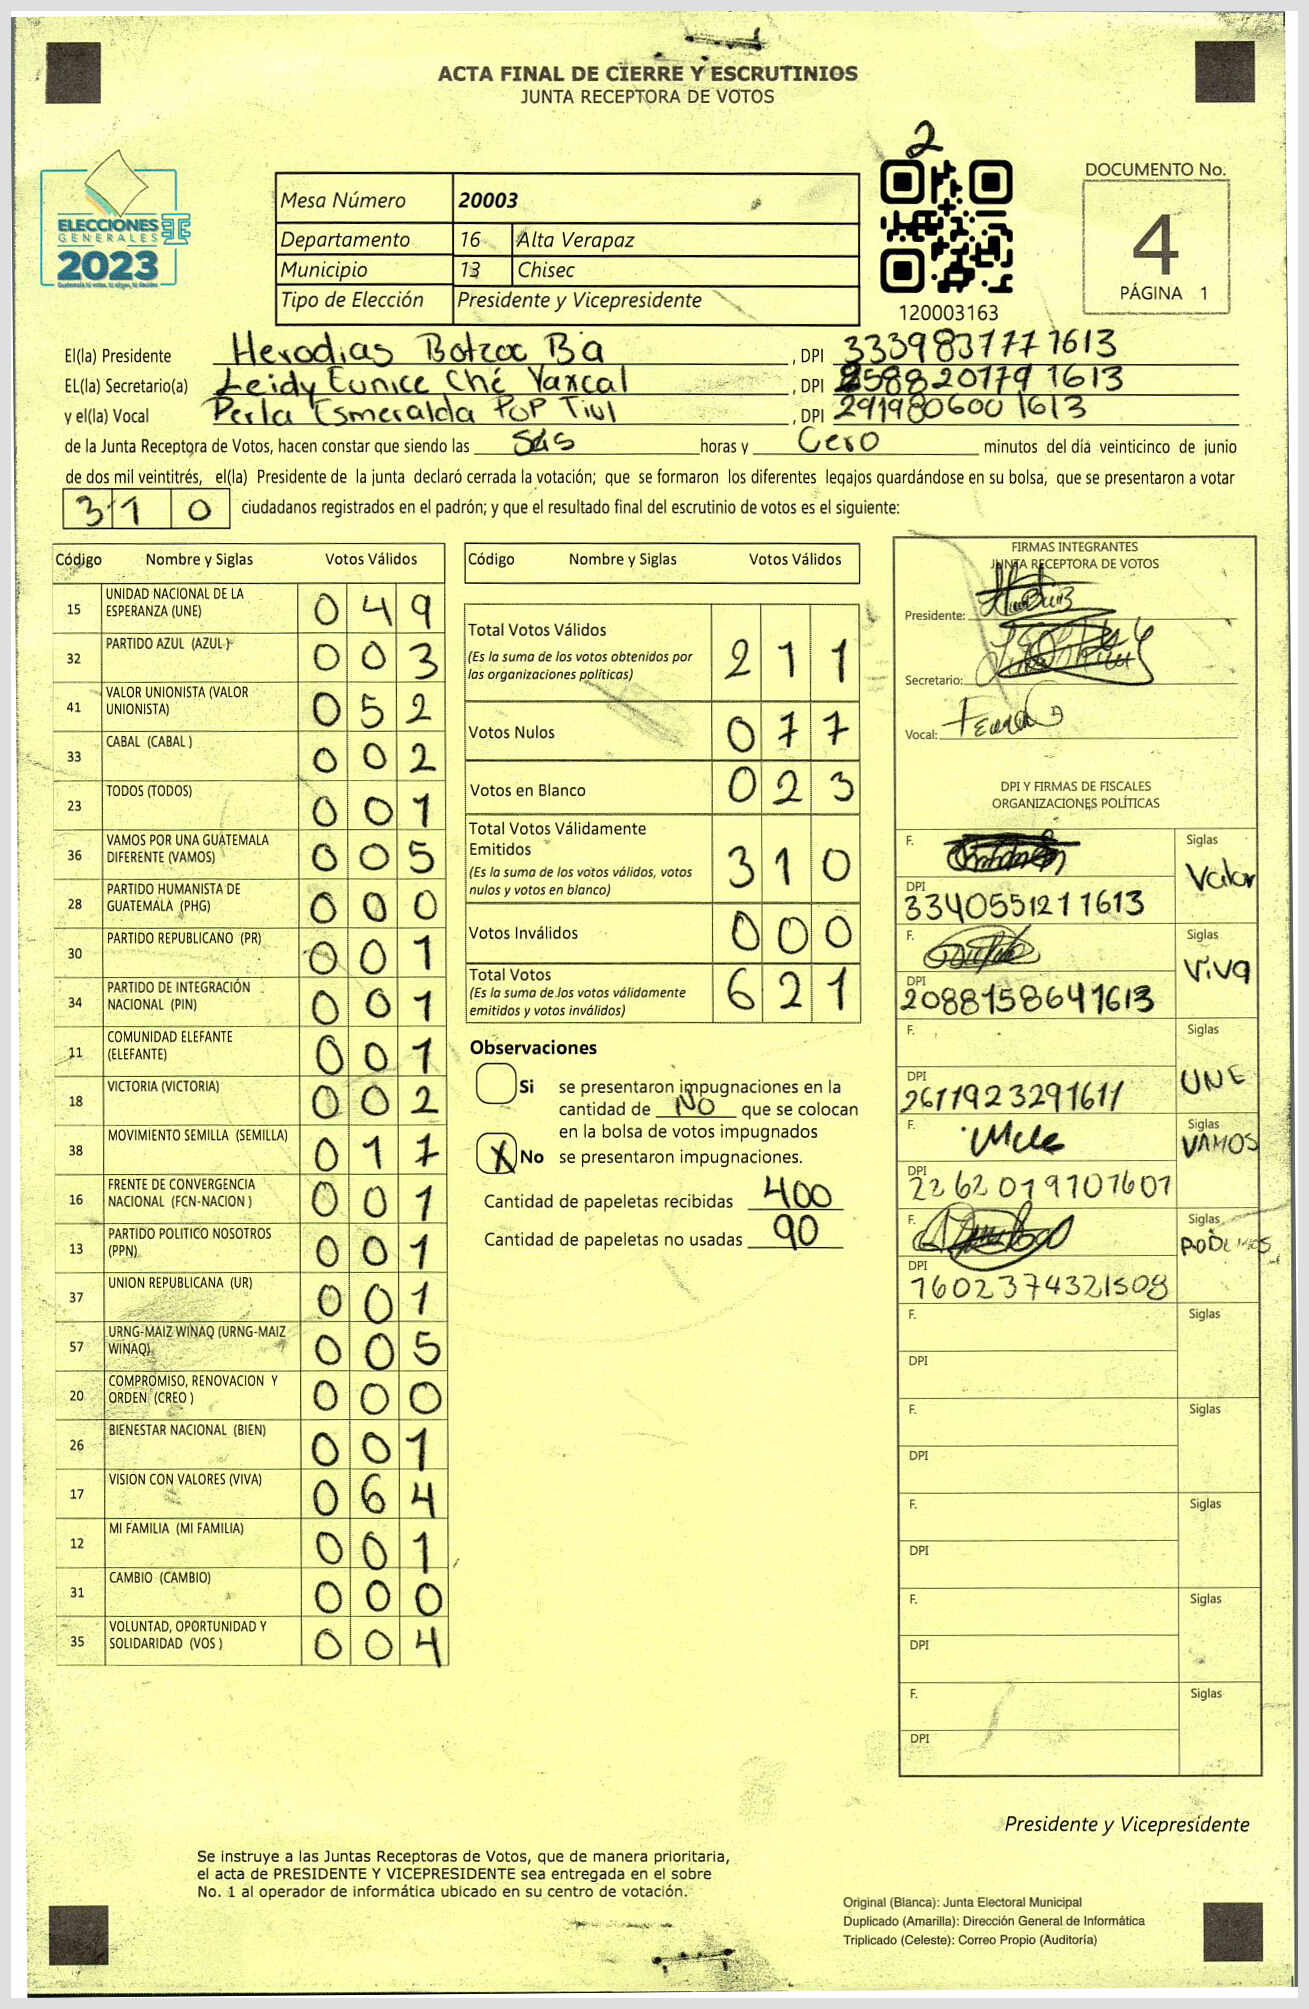 ACTA FINAL DE CIERRE Y ESCRUTINIOS
JUNTA RECEPTORA DE VOTOS
2
ELECCIONES
GENERALES
2023
Guatemala tú votas, tú eliges, tú decides
Mesa Número 20003
Departamento 16 Alta Verapaz
Municipio 13 Chisec
Tipo de Elección Presidente y Vicepresidente
120003163
DOCUMENTO No.
4
PÁGINA 1
El(la) Presidente Herodias Botzoc Ba , DPI 3339837771613
EL(la) Secretario(a) Leidy Eunice Ché Yaxcal , DPI 2588201791613
y el(la) Vocal Perla Esmeralda Pop Tiul , DPI 2919806001613
de la Junta Receptora de Votos, hacen constar que siendo las Seis horas y Cero minutos del día veinticinco de junio
de dos mil veintitrés, el(la) Presidente de la junta declaró cerrada la votación; que se formaron los diferentes legajos guardándose en su bolsa, que se presentaron a votar
310 ciudadanos registrados en el padrón; y que el resultado final del escrutinio de votos es el siguiente:
Código Nombre y Siglas Votos Válidos
15 UNIDAD NACIONAL DE LA ESPERANZA (UNE) 049
32 PARTIDO AZUL (AZUL ) 003
41 VALOR UNIONISTA (VALOR UNIONISTA) 052
33 CABAL (CABAL ) 002
23 TODOS (TODOS) 001
36 VAMOS POR UNA GUATEMALA DIFERENTE (VAMOS) 005
28 PARTIDO HUMANISTA DE GUATEMALA (PHG) 000
30 PARTIDO REPUBLICANO (PR) 001
34 PARTIDO DE INTEGRACIÓN NACIONAL (PIN) 001
11 COMUNIDAD ELEFANTE (ELEFANTE) 001
18 VICTORIA (VICTORIA) 002
38 MOVIMIENTO SEMILLA (SEMILLA) 017
16 FRENTE DE CONVERGENCIA NACIONAL (FCN-NACION ) 001
13 PARTIDO POLITICO NOSOTROS (PPN) 001
37 UNION REPUBLICANA (UR) 001
57 URNG-MAIZ WINAQ (URNG-MAIZ WINAQ) 005
20 COMPROMISO, RENOVACION Y ORDEN (CREO ) 000
26 BIENESTAR NACIONAL (BIEN) 001
17 VISION CON VALORES (VIVA) 064
12 MI FAMILIA (MI FAMILIA) 001
31 CAMBIO (CAMBIO) 000
35 VOLUNTAD, OPORTUNIDAD Y SOLIDARIDAD (VOS ) 004
Código Nombre y Siglas Votos Válidos
Total Votos Válidos 211
(Es la suma de los votos obtenidos por
las organizaciones políticas)
Votos Nulos 077
Votos en Blanco 023
Total Votos Válidamente
Emitidos 310
(Es la suma de los votos válidos, votos
nulos y votos en blanco)
Votos Inválidos 000
Total Votos 621
(Es la suma de los votos válidamente
emitidos y votos inválidos)
Observaciones
Si se presentaron impugnaciones en la
cantidad de NO que se colocan
en la bolsa de votos impugnados
X No se presentaron impugnaciones.
Cantidad de papeletas recibidas 400
Cantidad de papeletas no usadas 90
FIRMAS INTEGRANTES
JUNTA RECEPTORA DE VOTOS
Presidente:
Secretario:
Vocal:
DPI Y FIRMAS DE FISCALES
ORGANIZACIONES POLÍTICAS
F. Siglas Valor
DPI 3340551211613
F. Siglas Viva
DPI 2088158641613
F. Siglas UNE
DPI 2611923291611
F. Siglas VAMOS
DPI 2262019701601
F. Siglas PODEMOS
DPI 1602374321508
F. Siglas
DPI
F. Siglas
DPI
F. Siglas
DPI
F. Siglas
DPI
F. Siglas
DPI
Presidente y Vicepresidente
Se instruye a las Juntas Receptoras de Votos, que de manera prioritaria,
el acta de PRESIDENTE Y VICEPRESIDENTE sea entregada en el sobre
No. 1 al operador de informática ubicado en su centro de votación.
Original (Blanca): Junta Electoral Municipal
Duplicado (Amarilla): Dirección General de Informática
Triplicado (Celeste): Correo Propio (Auditoría)